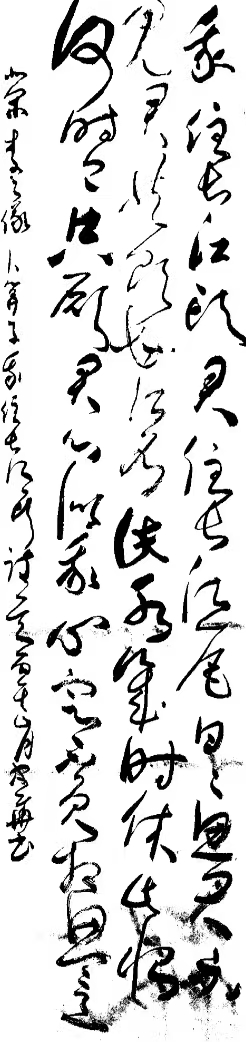 我住长江头君住长江尾日日思君不
见君共饮长江水此水几时休此恨
何时已只愿君心似我心定不负相思意
北宋李之仪卜算子我住长江头诗一首月书